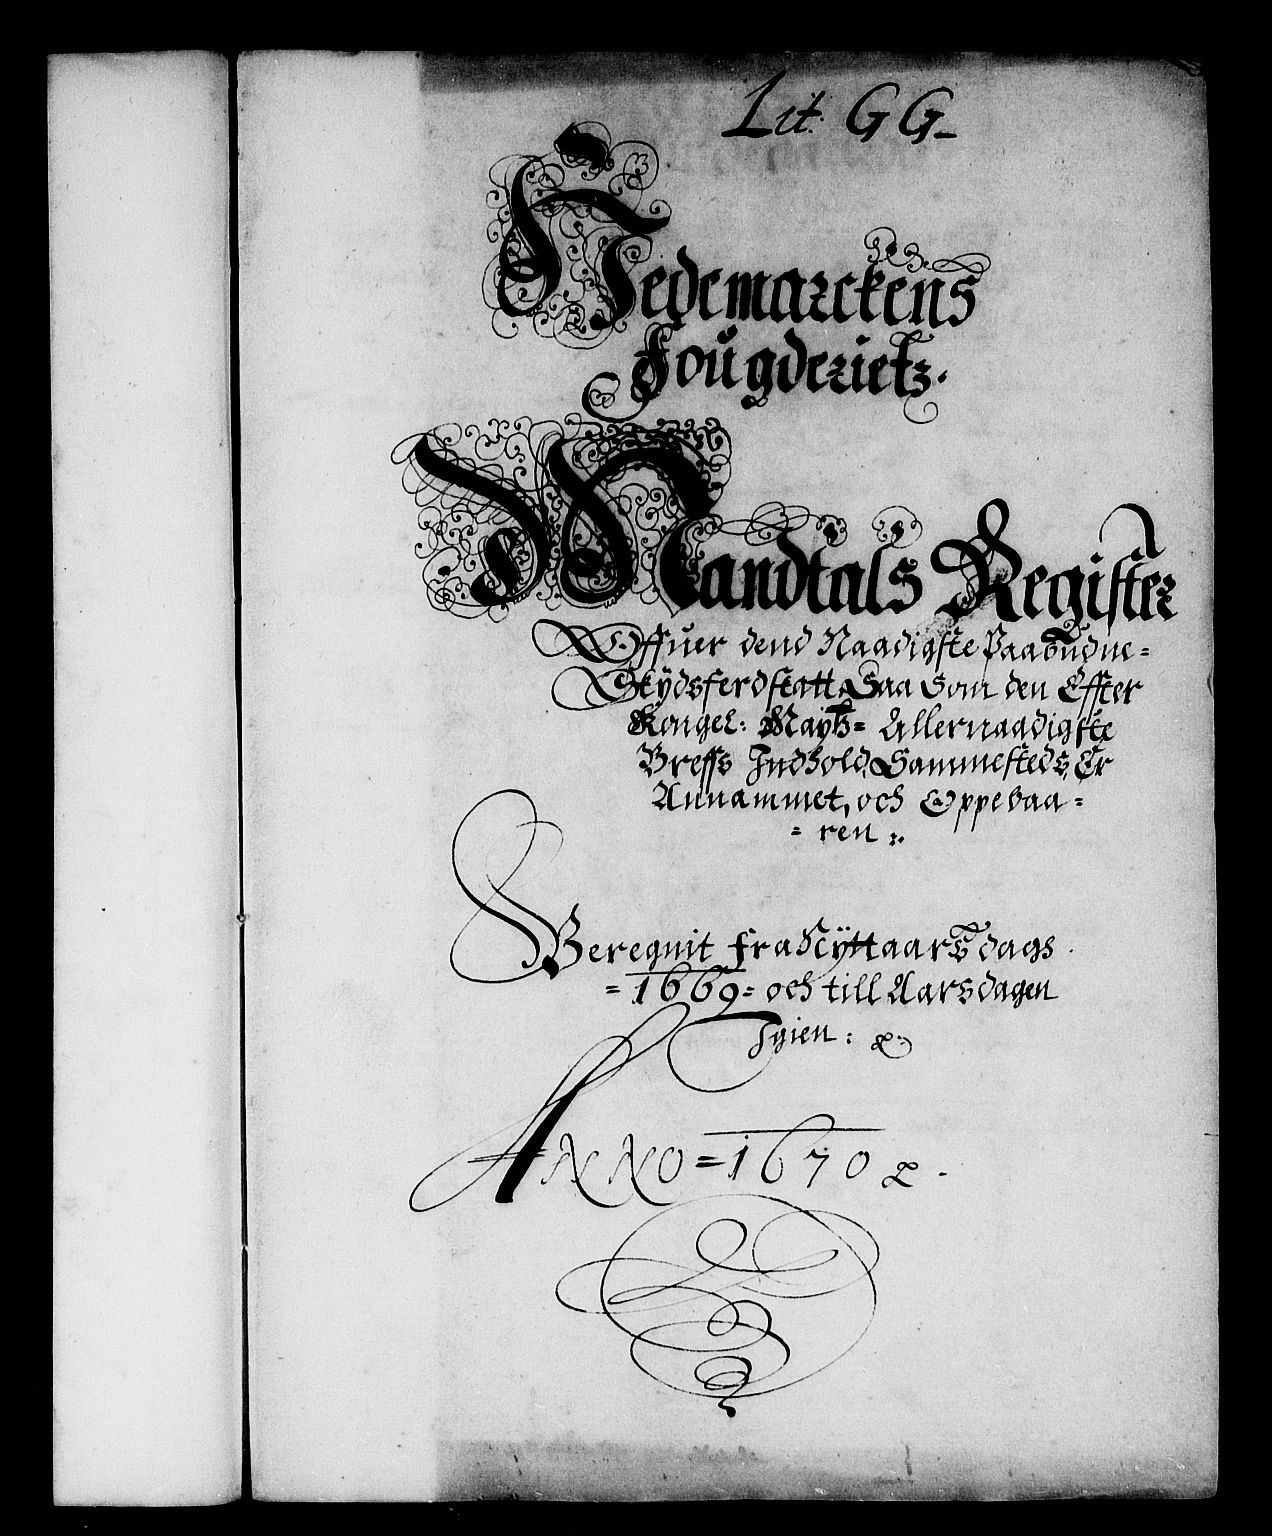 Lit: GG
Hedemarckens
Fougderietz.
Mandtals Register
Offuer dend Naadigste Paabudne=
Skydsferdskatt, Saa Som den Effter
Kongel: Maytz= Allernaadigste
Breffs Indhold, Sammesteds, Er
Annammet, och Oppebaa=
= ren :.
Beregnit fra Nÿttaars dags
= 1669= och till Aarsdagen
Igien :
ANNO = 1670